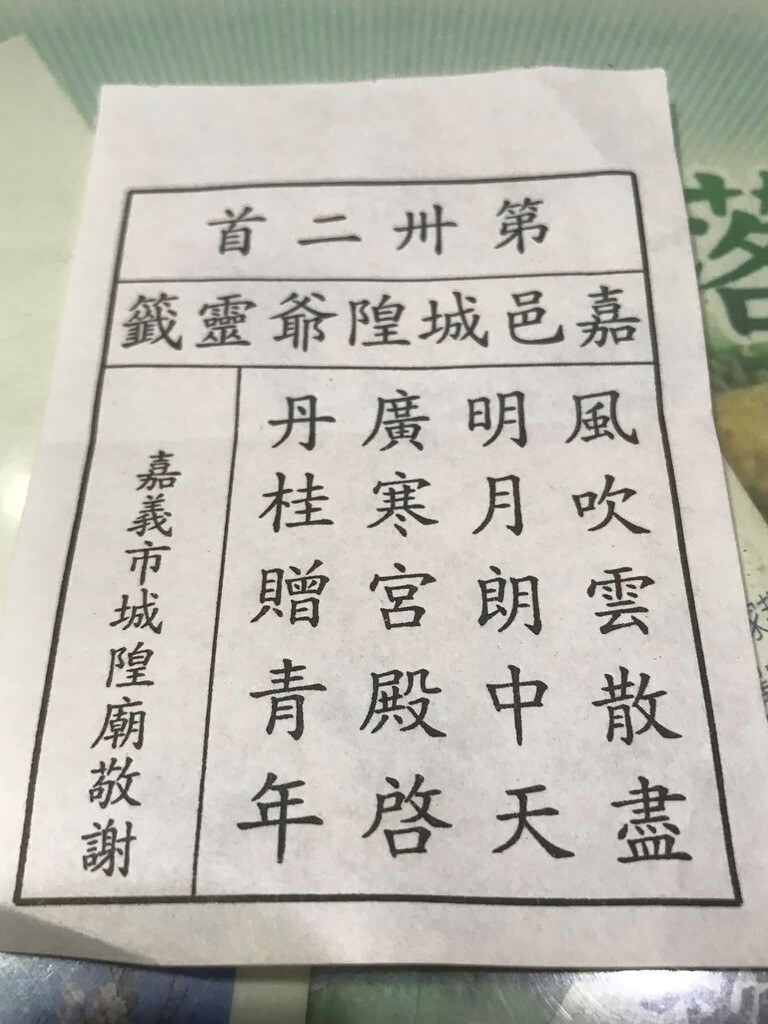 第卅二首
嘉邑城隍爺靈籤
風吹雲散盡
明月朗中天
廣寒宮殿啓
丹桂贈青年
嘉義市城隍廟敬謝
落